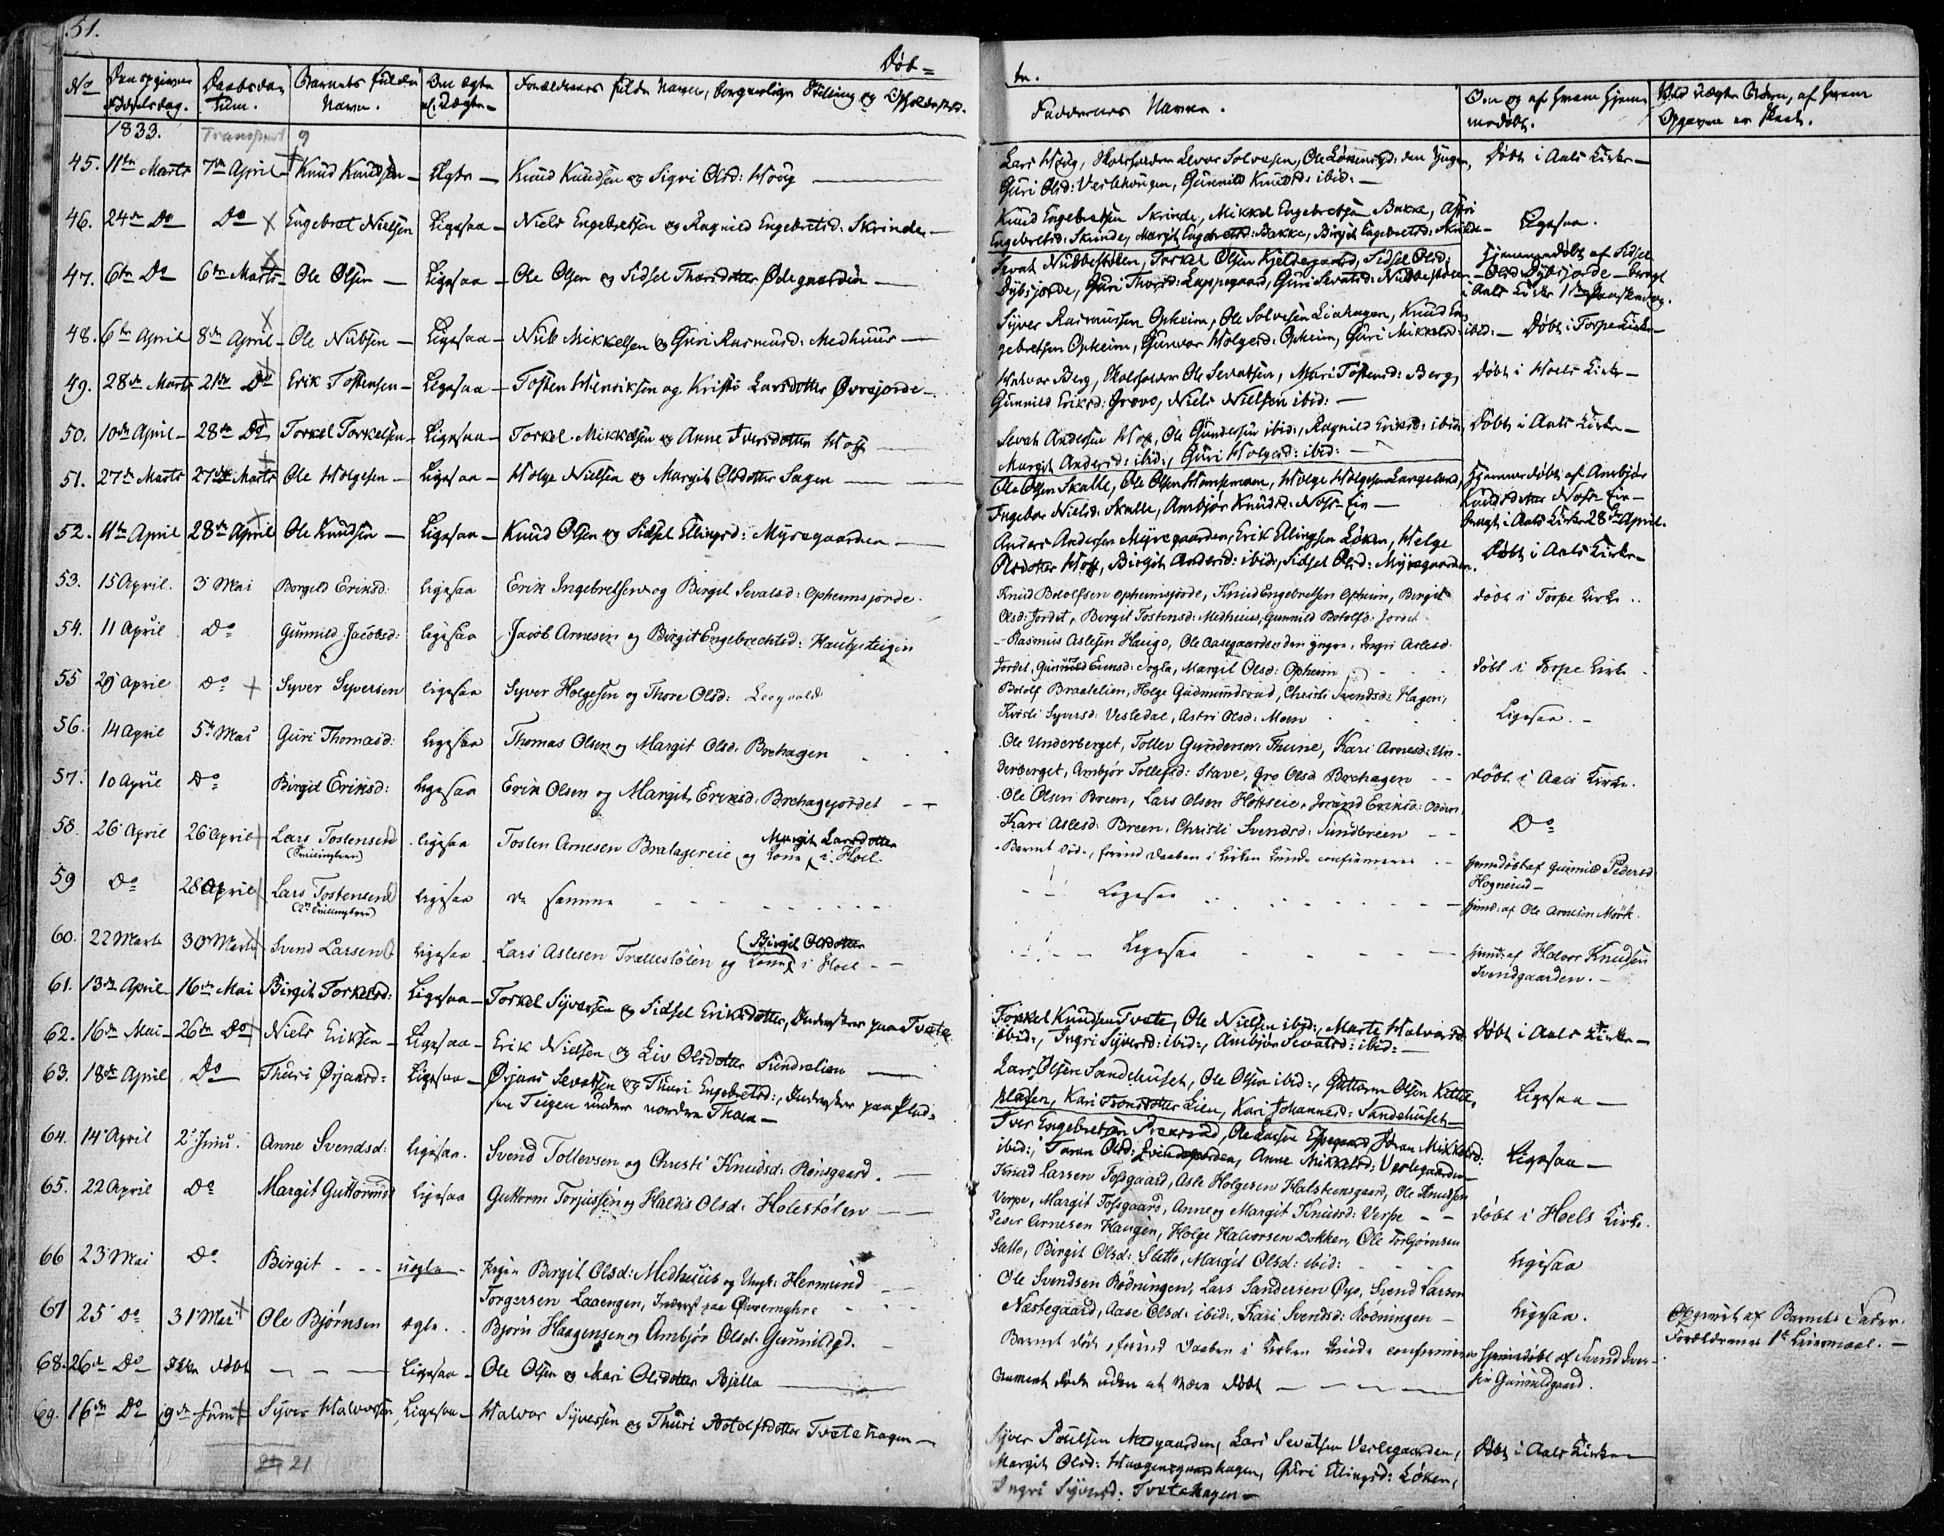 51.
Døb-
No
Den opgivne
Fødselsdag.
Daabsda-
tum.
Barnets fulde
Navn.
Om ægte
el. Uægte-
Forældrenes fulde Navn, borgerlige Stilling og Opholdssted.
1833.
Transport 9
45. 11te Marts 7de April Knud Knudsen Ægte Knud Knudsen og Sigri Olsd: Houg
46. 24de Do Do Engebret Nielsen Ligesaa Niels Engebretsen og Ragnild Engebretsd: Skrinde
47. 6te Do 6te Marts Ole Olsen Ligesaa Ole Olsen og Sidsel Thorsdotter Ødegaarden
48. 6te April 8de April Ole Nubsen Ligesaa Nub Mikkelsen og Guri Rasmusd: Medhuus
49. 28de Marts 21de Do Erik Tostensen Ligesaa Tosten Henriksen og Kristi Larsdotter Øvrejorde
50. 10de April 28de Do Torkel Torkelsen Ligesaa Torkel Mikkelsen og Anne Iversdotter Hoff
51. 27de Marts 27de Marts Ole Holgesen Ligesaa Holge Nielsen og Margit Olsdotter Sagen
52. 11te April 28de April Ole Knudsen Ligesaa Knud Olsen og Sidsel Ellingsd: Myregaarden
53. 15 April. 3 Mai Borgild Eriksd: Ligesaa Erik Ingebretsen og Birgit Sevatsd: Opheimsjorde
54. 11 April Do Gunnild Jacobsd: ligesaa Jacob Arnesen og Birgit Engebrechtsd:
55 29 April Do Syver Syversen ligesaa Syver Holgesen og Thore Olsd:
56. 14 April 5te Mai Guri Thomasd: ligesaa Thomas Olsen og Margit Olsd: Brehagen
57. 10 April Do Birgit Eriksd: Ligesaa Erik Olsen og Margit Eriksd: Brehagejordet
58. 26 April 26 April Lars Tostensen ligesaa Tosten Arnesen Bratagereie og Kone Margit Larsdotter i Hoel.
(Tvillingbrn)
59 Do 28 April Lars Tostensen ligesaa de samme
(2den Tvillingbrn)
60. 22 Marts 30 Marts Svend Larsen ligesaa Lars Aslesen Trællestølen og Kone (Birgit Olsdotter i Hoel
61. 13de April 16de Mai Birgit Torkelsd: Ligesaa Torkel Syversen og Sidsel Eriksdotter, Inderster paa Tveta
62. 16de Mai 26de Do Niels Eriksen Ligesaa Erik Nielsen og Liv Olsdotter Sundrelien
63. 18de April Do Thuri Ørjansd: Ligesaa Ørjans Sevatsen og Thuri Engebretsd:, Inderster paa Plad-
sen Teigen under nordre Thoen
64. 14 April 2 Juni. Anne Svendsd: Ligesaa. Svend Tollevsen og Christi Knudsd: Rimsgaard.
65. 22 April Do Margit Guttormsd Ligesaa Guttorm Torjussen og Haldis Olsd: Holestølen
66 23 Mai Do Birgit uægte Pigen Birgit Olsd: Medhuus og Ungk: Hermund
Torgersen Laaengen, Inderst paa Øvremyhre
67 25 Do 31 Mai Ole Bjørnsen ægte Bjørn Haagensen og Ambjør Olsd: Gunnildsgd.
68. 26de Do Ikke døbt Ligesaa Ole Olsen og Mari Olsdotter Bjella
69. 16de Do 9de Juni Syver Halvorsen Ligesaa Halvor Syversen og Thuri Botolfsdotter Tvetehagen
21
te.
Faddernes Navne.
Om og af hvem hjem-
medøbt.
Ved uægte Børn, af hvem
Opgaven er skeet.
Lars Houg, Skoleholder Levor Solvesen, Ole den Yngre, Døbt i Aals Kirke
Guri Olsd: Veslehougen, Gunnild Knudsd: ibid:
Knud Engebretsen Skrinde, Mikkel Engebretsen Bakke, Astri
Engebretsd: Skrinde, Margit Engebretsd: Bakke, Birgit Engebretsd: Skrinde Ligesaa.
Sevat Nubbestølen, Torkel Olsen Kjeldegaard, Sidsel Olsd: Hjemmedøbt af Sidsel
Dybsjorde, Guri Thorsd: Lappegaard, Guri Sevatsd: Nubbestølen Olsd: Dybsjorde - bragt
i Aals Kirke 1ste Paaskedag.
Syver Rasmussen Opheim, Ole Solvesen Liahagen, Knud En-
gebretsen Opheim, Gunvor Holgesd: Opheim, Guri Mikkelsd: ibid: Døbt i Torpe Kirke
Halvor Berg, Skoleholder Ole Sevatsen, Mari Tostensd: Berg, Døbt i Hoels Kirke
Gunnild Eriksd: Grove, Niels Nielsen ibid:
Sevat Andersen Hoff, Ole Gundersen ibid:, Ragnild Eriksd: ibid: Døbt i Aals Kirke
Margit Andersd: ibid:, Guri Holgesd: ibid:
Ole Olsen Skalle, Ole Olsen, Holge Holgesen Langeland, Hjemmedøbt af Ambjør
Ingebor Nielsd: Skalle, Ambjør Knudsd: Noss-Eie Knudsdotter Noss-Eie
bragt i Aals Kirke 28de April.
Anders Andersen Myregaarden, Erik Ellingsen Løken, Helge
Olsdotter Hoff, Birgit Andersd: ibid:, Sidsel Olsd: Myregaarden. Døbt i Aals Kirke
Knud Botolfsen Opheimsjorde, Knud Engebretsen Opheim, Birgit døbt i Torpe Kirke
Olsd: Jordet, Birgit Tostensd: Medhuus, Gunnild Botolfsd: Jordet
Rasmus Aslesen Haugo, Ole Aasegaarden den yngre, Ingri Aslesd
Jordet, Gunnild Svensd: Sogla, Margit Olsd: Opheim døbt i Torpe Kirke
Botolf Braatelien, Holge Gudmundsrud, Christi Svendsd: Hagen,
Kristi Syversd: Vesledal, Astri Olsd: Moen Ligesaa.
Ole Underberget, Tollev Gundersen Thune, Kari Arnesd: Un-
derberget, Ambjør Tollefsd: Stave, Gro Olsd Brehagen døbt i Aals Kirke.
Ole Olsen Breen, Lars Olsen Hoftseie, Jorand Eriksd:
Kari Aslesd: Breen, Christi Svendsd: Sundbreen Do
Barnet døde, førend Daaben i Kirken kunde confirmeres hjemdøbt af Gunnild Pedersd
Hogneseid
Ligesaa hjemd: af Ole Arnesen Mørk.
Ligesaa hjemd: af Halvor Knudsen
Svendgaarden.
Torkel Knudsen Tveta, Ole Nielsen ibid:, Marte Halvorsd: Døbt i Aals Kirke
ibid:, Ingri Syversd: ibid:, Ambjør Sevatsd: ibid:
Lars Olsen Sandehuset, Ole Olsen ibid:, Guttorm Olsen Kittil-
pladsen, Kari Lien, Kari Johannesd: Sandehuset Ligesaa
Iver Engebretsen, Ole Larsen, Mikkelsd:
ibid:, Olsd:, Anne Mikkelsd: Veslegaarden Ligesaa
Knud Larsen Fosgaard, Asle Holgesen Halsteensgaard, Ole Knudsen
Verpe, Margit Fosgaard, Anne og Margit Knudsd: Verpe døbt i Hoels Kirke.
Peder Arnesen Haugen, Holge Halvorsen Dokken, Ole Torbjørnsen
Slette, Birgit Olsd: Slette, Margit Olsd: ibid: Ligesaa
Ole Svendsen Rødningen, Lars Sandersen Øye, Svend Larsen
Næstegaard, Aase Olsd: ibid:, Kari Svendsd: Rødningen Ligesaa. Opgivet af Barnets Fader.
Forældrenes 1ste Leiermaal.
Barnet døde, førend Daaben i Kirken kunde confirmeres hjemdøbt af Svend Iver-
sen Gunnildgaard.
Barnet døde uden at være døbt
Syver Poulsen Medgaarden, Lars Sevatsen Veslegaarden, Døbt i Aals Kirke
Margit Olsd: Haagensgaardhagen, Guri Ellingsd: Løken,
Ingri Syversd: Tvetehagen